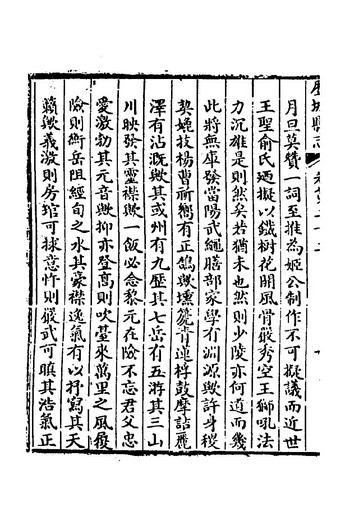 歷城縣志 卷第二十二
月旦莫贊一詞至推為姬公制作不可擬議而近世
王聖俞氏迺擬以鐵樹花開風骨嚴秀空王獅吼法
力沉雄是則然矣若猶未也然則少陵亦何道而幾
此將無庫發當陽武繩膳部家學有淵源歟許身稷
契娩技楊曹祈嚮有正鵠歟壎篪青蓮桴鼓摩詰麗
澤有沾溉歟其或州有九歷其七岳有五游其三山
川映發其靈襟歟一飯必念黎元在險不忘君父忠
愛激勃其元音歟抑亦登高則吹臺來萬里之風履
險則衡岳阻經旬之水其豪襟逸氣有以抒寫其天
籟歟義激則房琯可捄意忤則嚴武可瞋其浩氣正